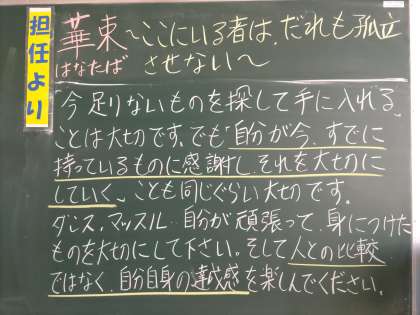 担任より
華束～ここにいる者は、だれも孤立
はなたば させない～
「今足りないものを探して手に入れる」
ことは大切です。でも「自分が今、すでに
持っているものに感謝し、それを大切に
していく」ことも同じぐらい大切です。
ダンス、マッスル、自分が頑張って、身につけた
ものを大切にして下さい。そして人との比較
ではなく、自分自身の達成感を楽しんでください。